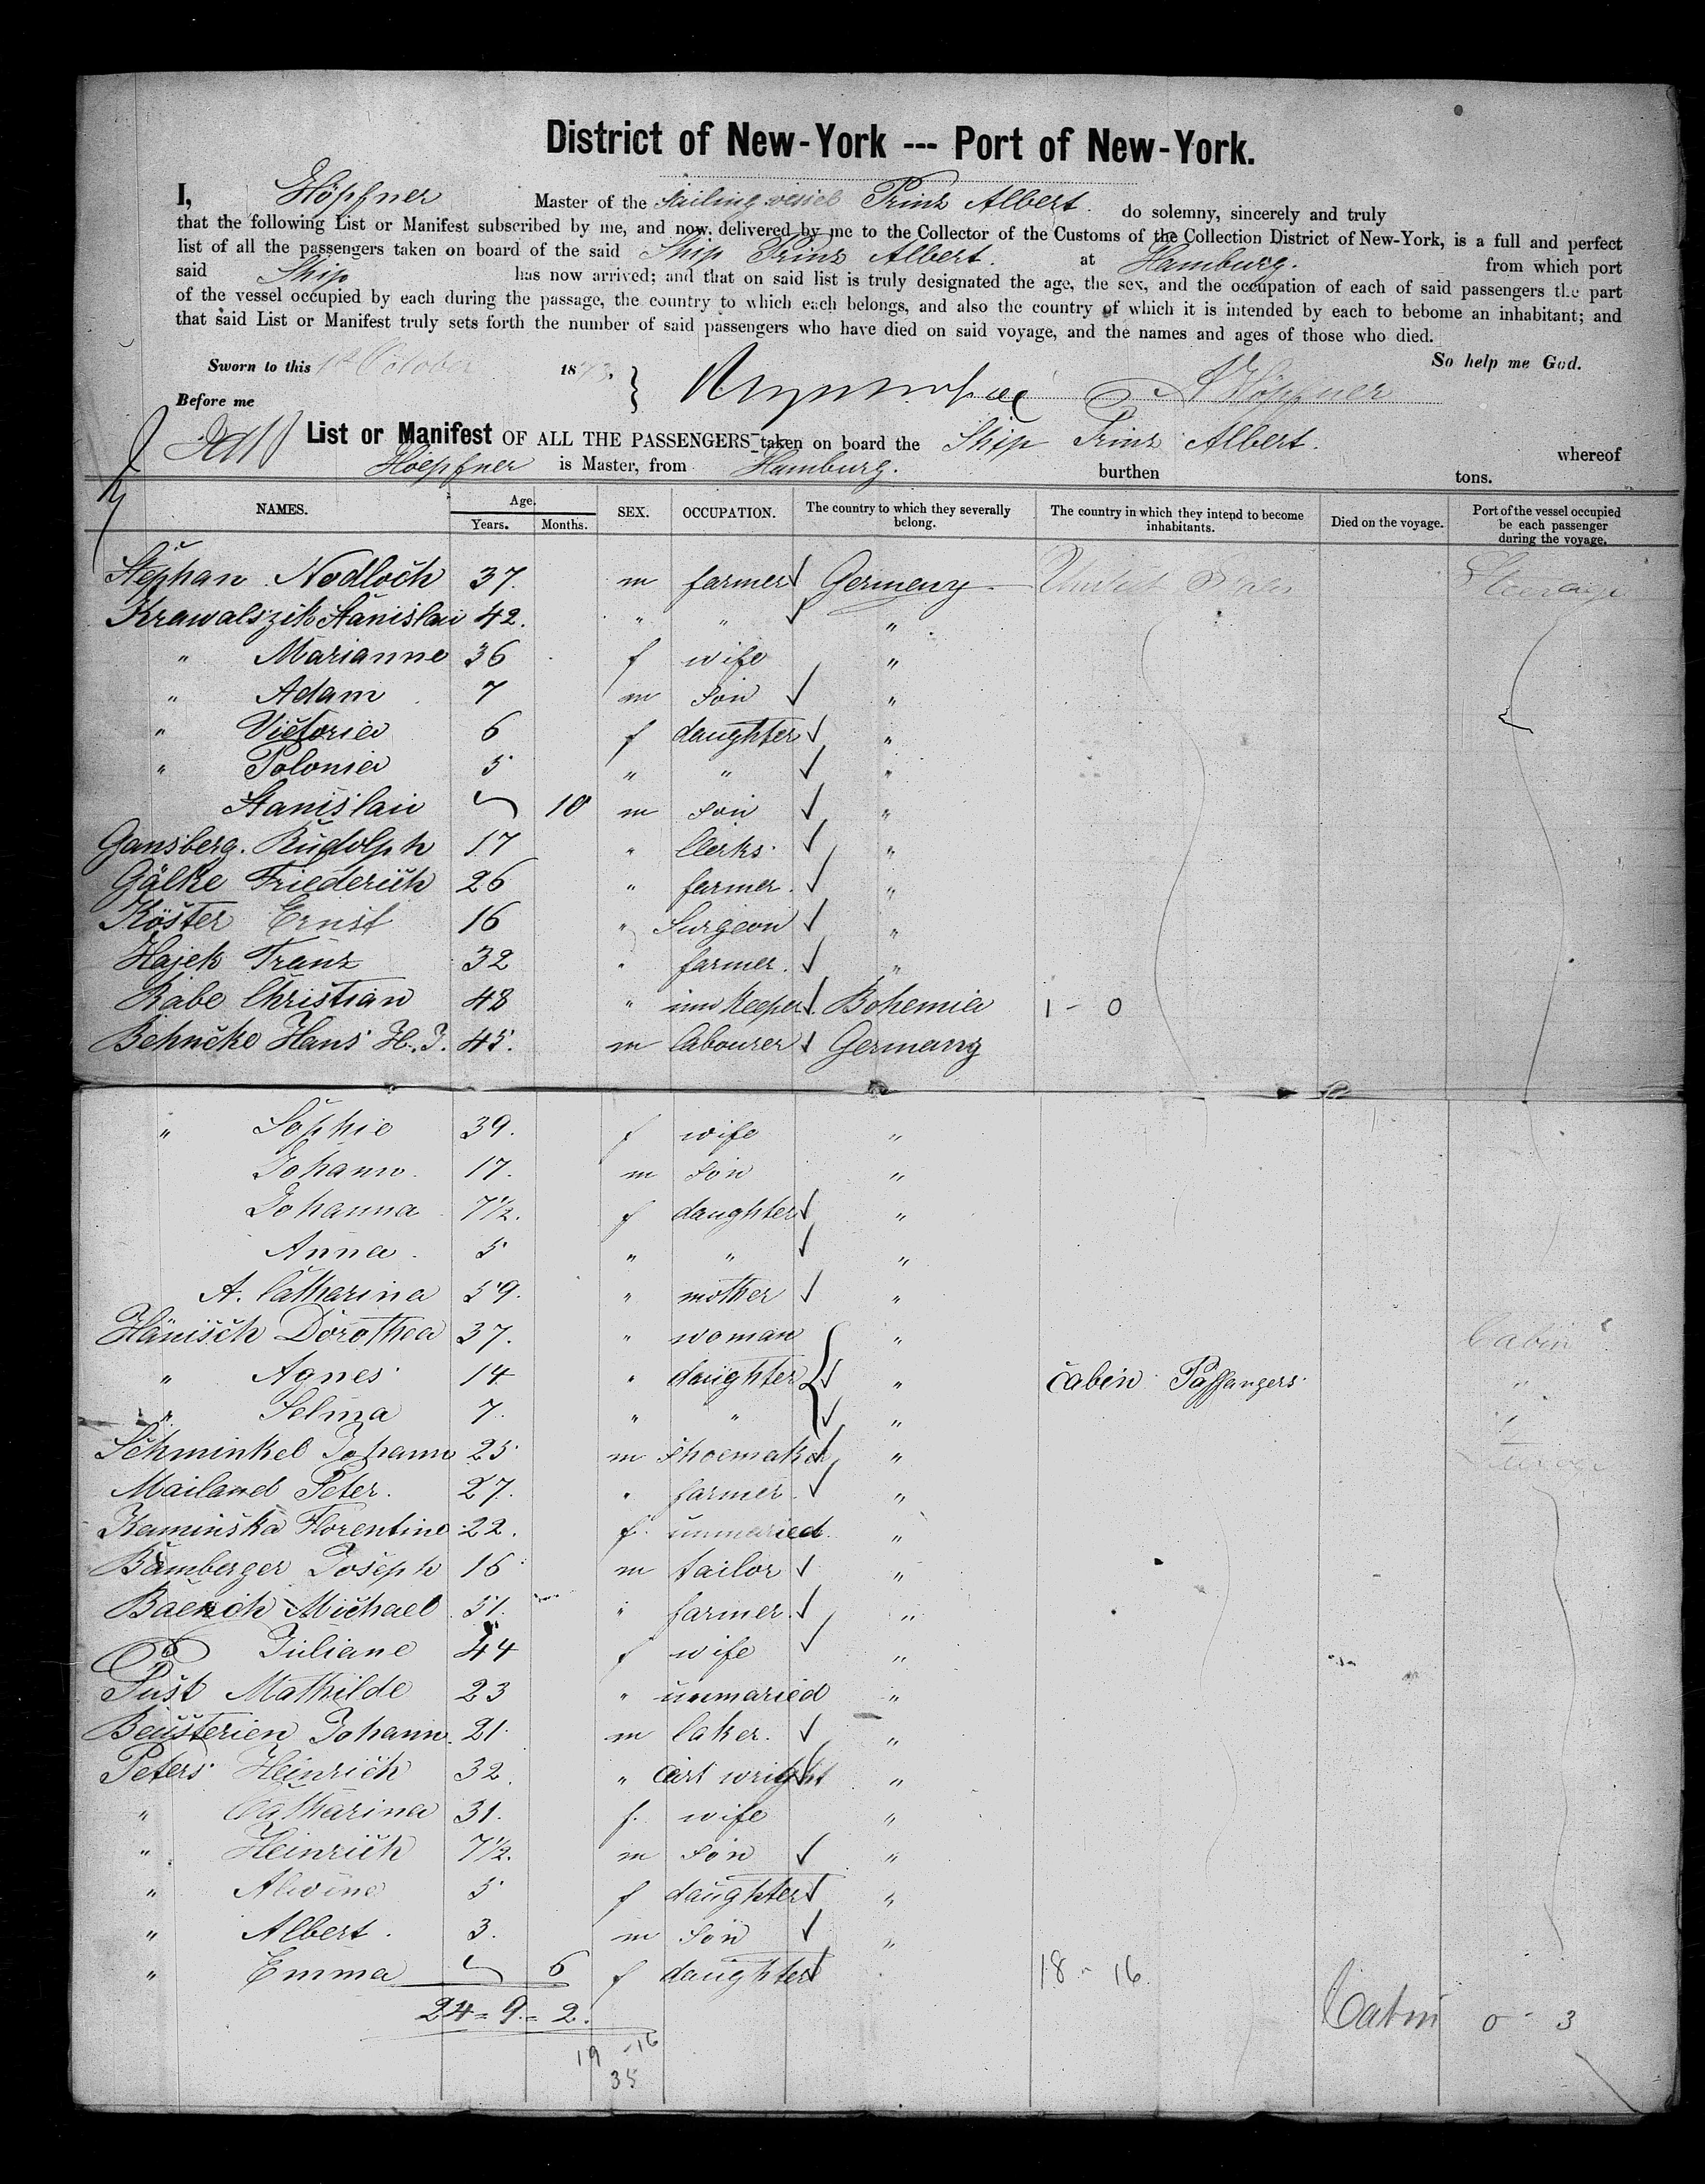 District of New-York --- Port of New-York.
I, Höpfner Master of the Sailing vessel Prinz Albert. do solemny, sincerely and truly
that the following List or Manifest subscribed by me, and now delivered by me to the Collector of the Customs of the Collection District of New-York, is a full and perfect
list of all the passengers taken on board of the said Ship Prinz Albert. at Hamburg. from which port
said Ship has now arrived; and that on said list is truly designated the age, the sex, and the occupation of each of said passengers the part
of the vessel occupied by each during the passage, the country to which each belongs, and also the country of which it is intended by each to bebome an inhabitant; and
that said List or Manifest truly sets forth the number of said passengers who have died on said voyage, and the names and ages of those who died.
Sworn to this 1st October 1873. So help me God.
Before me Höpfner
List or Manifest OF ALL THE PASSENGERS taken on board the Ship Prinz Albert. whereof
Hoepfner is Master, from Hamburg. burthen tons.
NAMES. Age. Years. Months. SEX. OCCUPATION. The country to which they severally belong. The country in which they intend to become inhabitants. Died on the voyage. Port of the vessel occupied be each passenger during the voyage.
Stephan Nodloch 37. m farmer Germeny United States Steerage
Krawalszik Stanislau 42. " " "
" Marianne 36 f wife "
" Adam 7 m son "
" Victoria 6 f daughter "
" Polonia 5 " " "
Stanislau 10 m son "
Gansberg. Rudolph 17 " Clerks "
Gälke Friederich 26 " farmer. "
Köster Ernst 16 " Surgeon "
Hajek Franz 32 " farmer. "
Rabe Christian 48 " inn keeper. Bohemia 1 - 0
Behncke Hans H. J. 45. m labourer Germany
" Sophie 39. f wife "
Johann. 17. m son "
Johanna 7 1/2. f daughter "
Anna. 5 " " "
A. Catharina 59. " mother "
Hänisch Dorothea 37. " woman " Cabin
" Agnes 14 " daughter " Cabin Passangers "
" Selma 7. " " " "
Schminkel Johann 25 m shoemaker "
Mailand Peter. 27. " farmer. "
Kaminska Florentine 22. f. unmaried "
Bamberger Joseph 16 m tailor "
Baench Michael 51. " farmer. "
Juliane 44 f wife "
Pust Mathilde 23 " unmaried "
Beusterien Johann. 21. m baker. "
Peters Heinrich 32. " Cart wright "
" Catharina 31. f. wife "
" Heinrich 7 1/2. m son "
" Alwine 5 f daughter "
" Albert. 3. m son "
" Emma 6 f daughter 18 - 16
24 = 9. = 2. Cabin 0 - 3
19 - 16
35